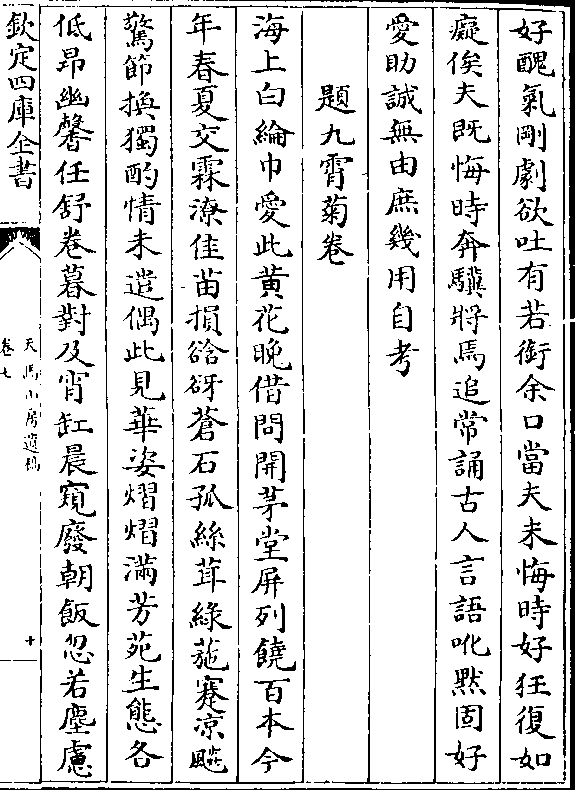 好醜氣剛劇欲吐有若銜余口當夫未悔時好狂復如
癡俟夫既悔時奔驥將馬追常誦古人言語吪黙固好
愛助誠無由庶幾用自考
題九霄菊卷
海上白綸巾愛此黄花晚借問開茅堂屏列饒百本今
年春夏交霖潦佳苗損谽谺蒼石孤絲茸綠葹蹇凉飈
驚節換獨酌情未遣偶此見華姿熠熠滿芳苑生態各
低昂幽馨任舒卷暮對及宵缸晨窺廢朝飯忽若塵慮
欽定四庫全書
天馬山房遺稿
卷七
十